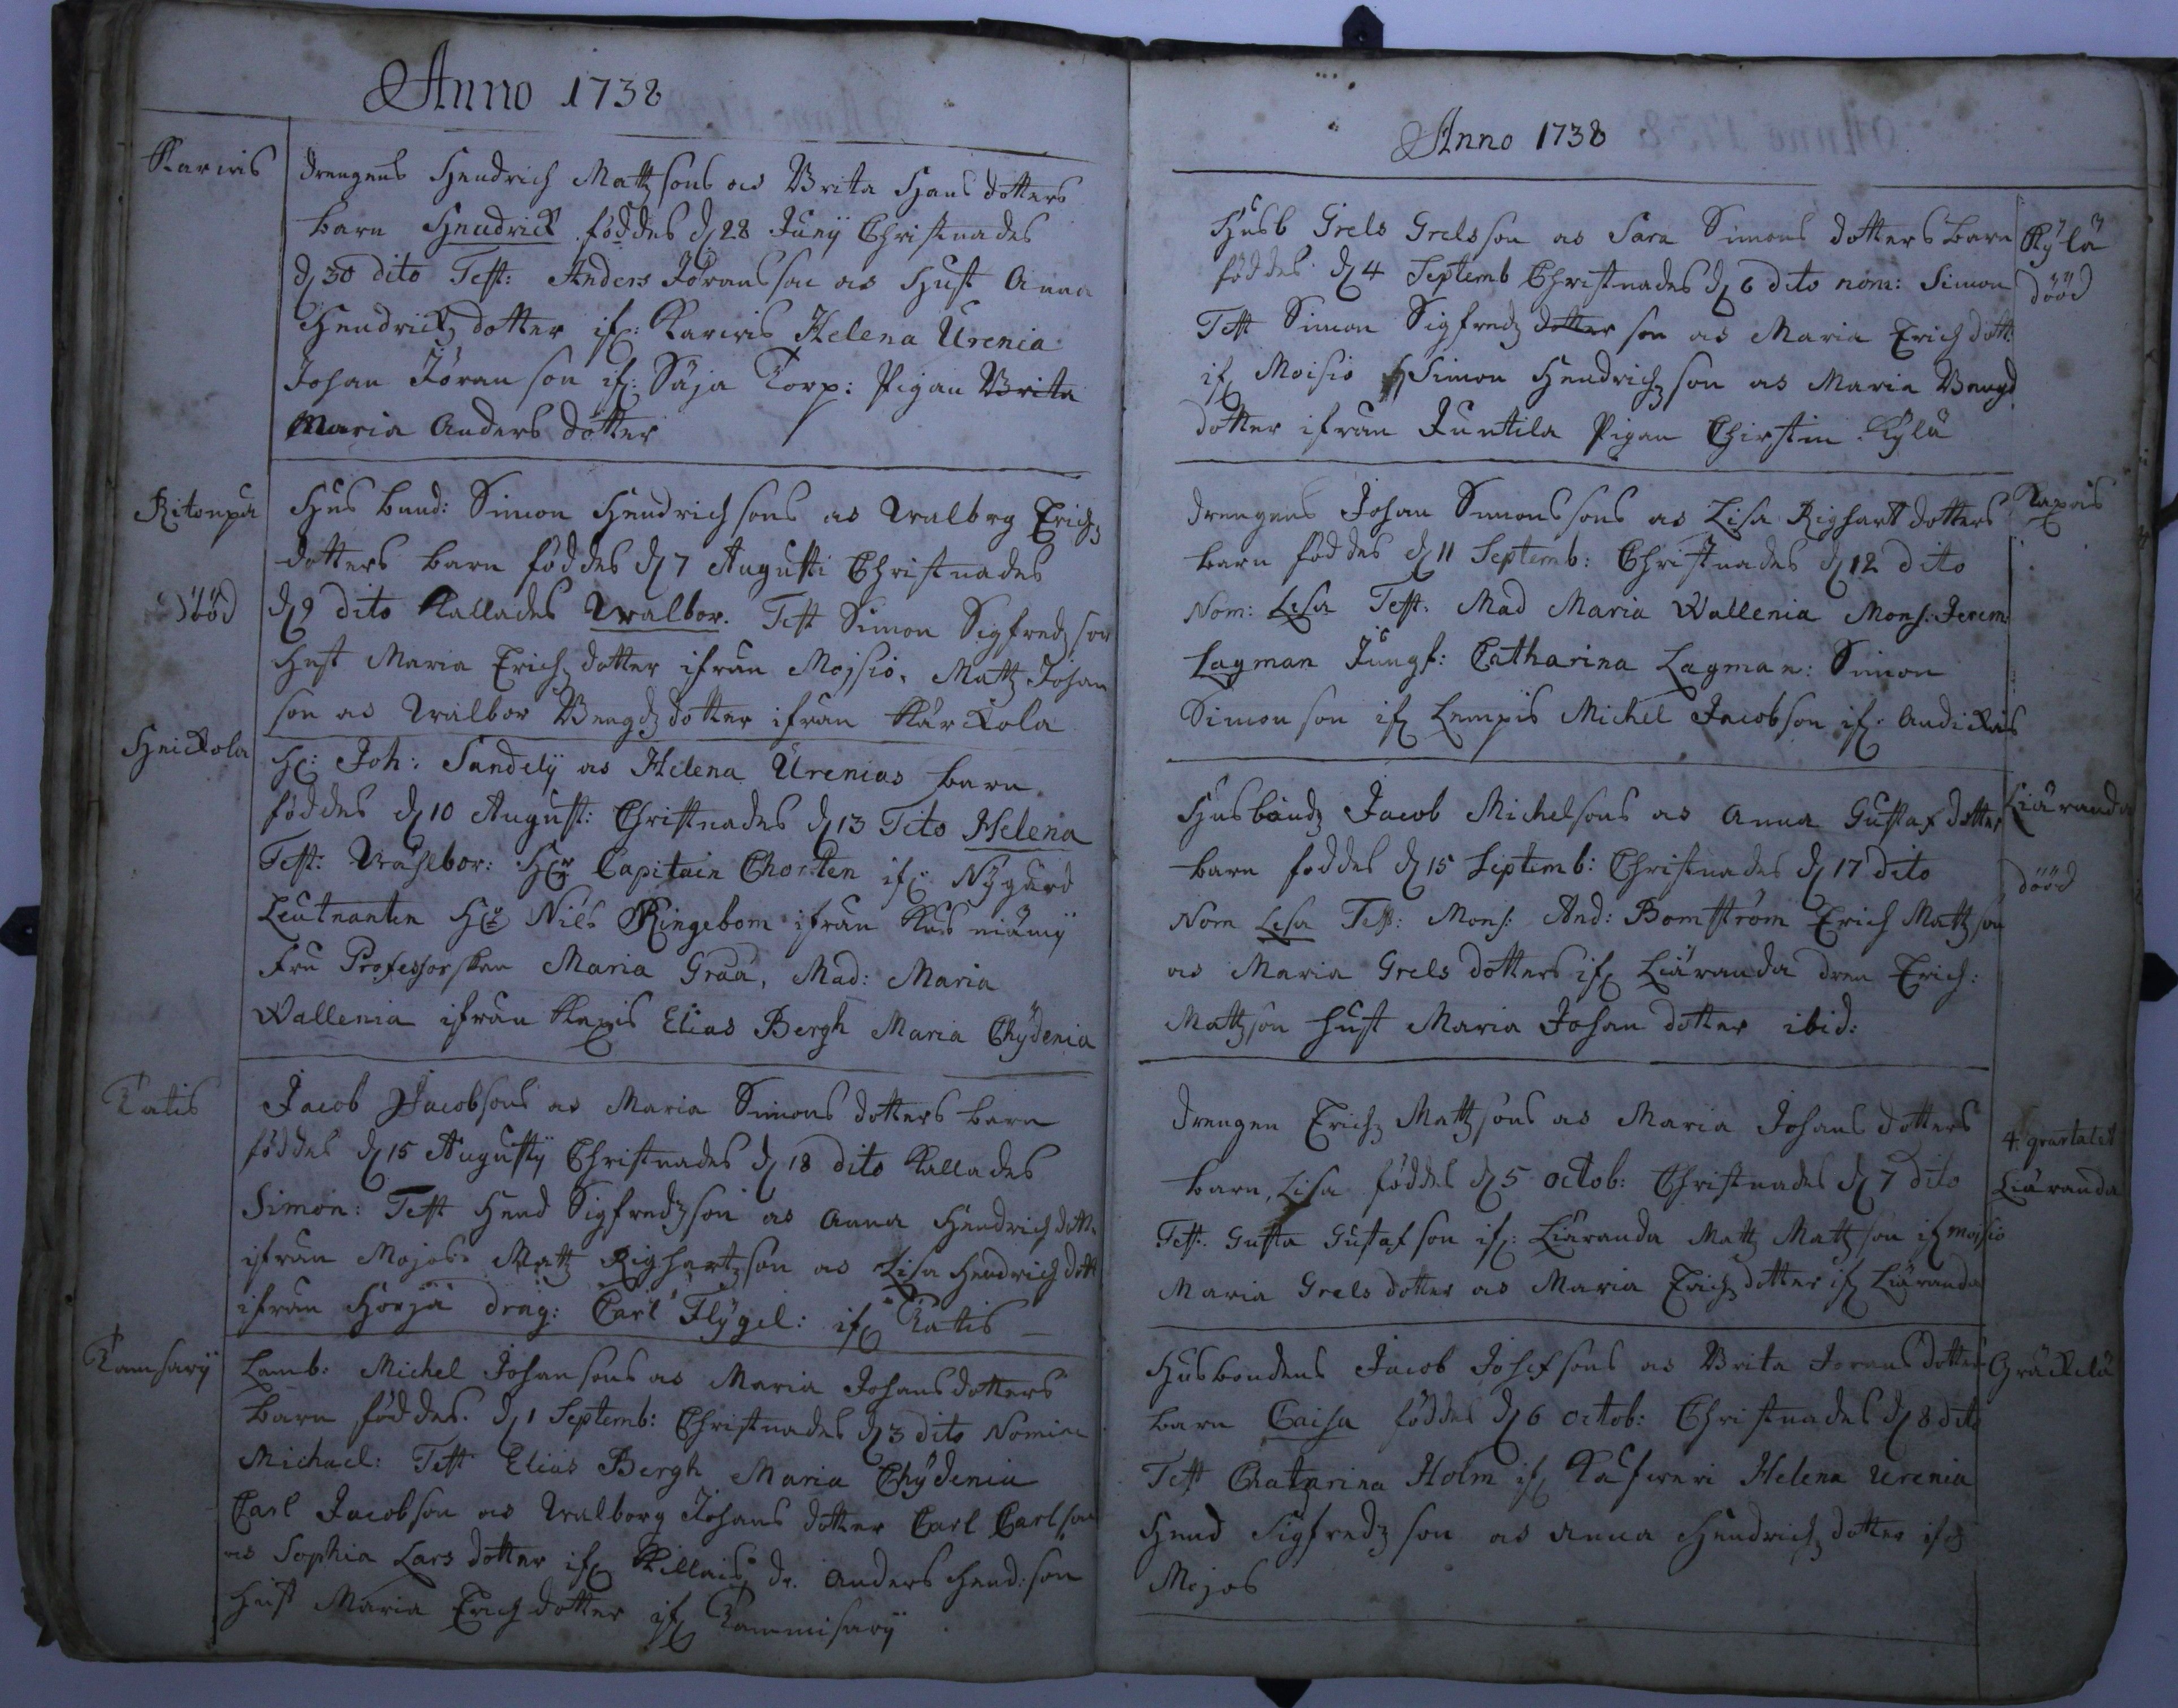 Anno 1738
Karwis
drengens Hendrich Mattsons as Brita Hans dotters
barn Hendrick föddes d 28 Junij Christnades
d 30 dito Test: Anders Jöransson as Hust Anna
Hendrickz dotter if: Karwis Helena Urenia
Johan Jöranson if: Säja Torp: Pigan Brita
Maria Anders dotter
Ritonpä
Hus bund: Simon Hendrichsons as Walbrg Erichz
dotters barn föddes d 7 Augusti Christnades
Död
d 9 dito Kallades Walbor. Test Simon Sigfredzson
Hust Maria Erichz dotter ifrån Mojsio, Matz Johan
son as Walbor Bengdz dotter ifrån Kärkola
Heickola
H: Joh: Sandelij as Helena Urenias barn
föddes d 10 August: Christnades d 13 Dito Helena
Test: Wählbor: Hr Capitain Chorten if: Nygård
Leutnanten Hr Nils Ringebom ifrån Kusniämij
Fru Professorskan Maria Graa, Mad: Maria
Wallenia ifrån Kaxis Elias Bergh Maria Chydenia
Tatis
Jacob Jacobsons as Maria Simons dotters barn
föddes d 15 Augustij Christnades d 18 dito Kallades
Simon: Test Hend Sigfredzson as Anna Hendrich dott
ifrån Mojos Matz Righartzson as Lisa Hendrich dott
ifrån Horja drag: Carl Flygel: if Tatis
Tamsarij
Lamb: Michel Johansons as Maria Johansdotters
barn föddes d 1 Septemb: Christnades d 3 dito Nomine
Michael: Test Elias Bergh Maria Chydenia
Carl Jacobson as Walborg Johans dotter Carl Carlson
as Sophia Lars dotter if Killais dr. Anders Hend: son
Hust Maria Erich dotter if Tammisarij
Anno 1738
Husb Grels Grelsson as Sara Simons dotters barn
Kylä
föddes d 4 Septemb Christnades d 6 dito nom: Simon
dööd
Test Simon Sigfredz dotter son as Maria Erich dott:
if Moisio Simon Hendrichson as Maria Bengd
dotter ifrån Juntila Pigan Chirstin Kylä
drengens Johan Simonssons as Lisa Righart dotters
Kaxois
barn föddes d 11 Septemb: Christnades d 12 dito
Nom: Lisa Test: Mad Maria Wallenia Mons: Jerem:
Lagman Jungf: Catharina Lagman: Simon
Simonson if Lempis Michel Jacobson if: Andickais
Husbondz Jacob Michelsons as Anna Gustaf dotter
Liäranda
barn foddes d 15 Septemb: Christnades d 17 dito
dööd
Nom Lisa Test: Mons: And: Bomström Erich Mattson
as Maria Grels dotters if Liäranda dren Erich:
Mattson Hust Maria Johan dotter ibid:
Drengen Erich Mattsons as Maria Johans dotters
4 qvartalet
barn, Lisa föddes d 5 octob: Christnades d 7 dito
Liäranda
Test: Gusta Gustafson if: Liäranda Matz Matzson if mojsio
Maria Grels dotter as Maria Erich dotter if Liäranda
Husbondens Jacob Josefsons as Brita Jorans dotter
Gräckilä
barn Caisa föddes d 6 octob: Christnades d 8 dito
Test Chatarina Holm if Kafweri Helena Urenia
Hend Sigfredz son as Anna Hendrichz dotter if
Mojos